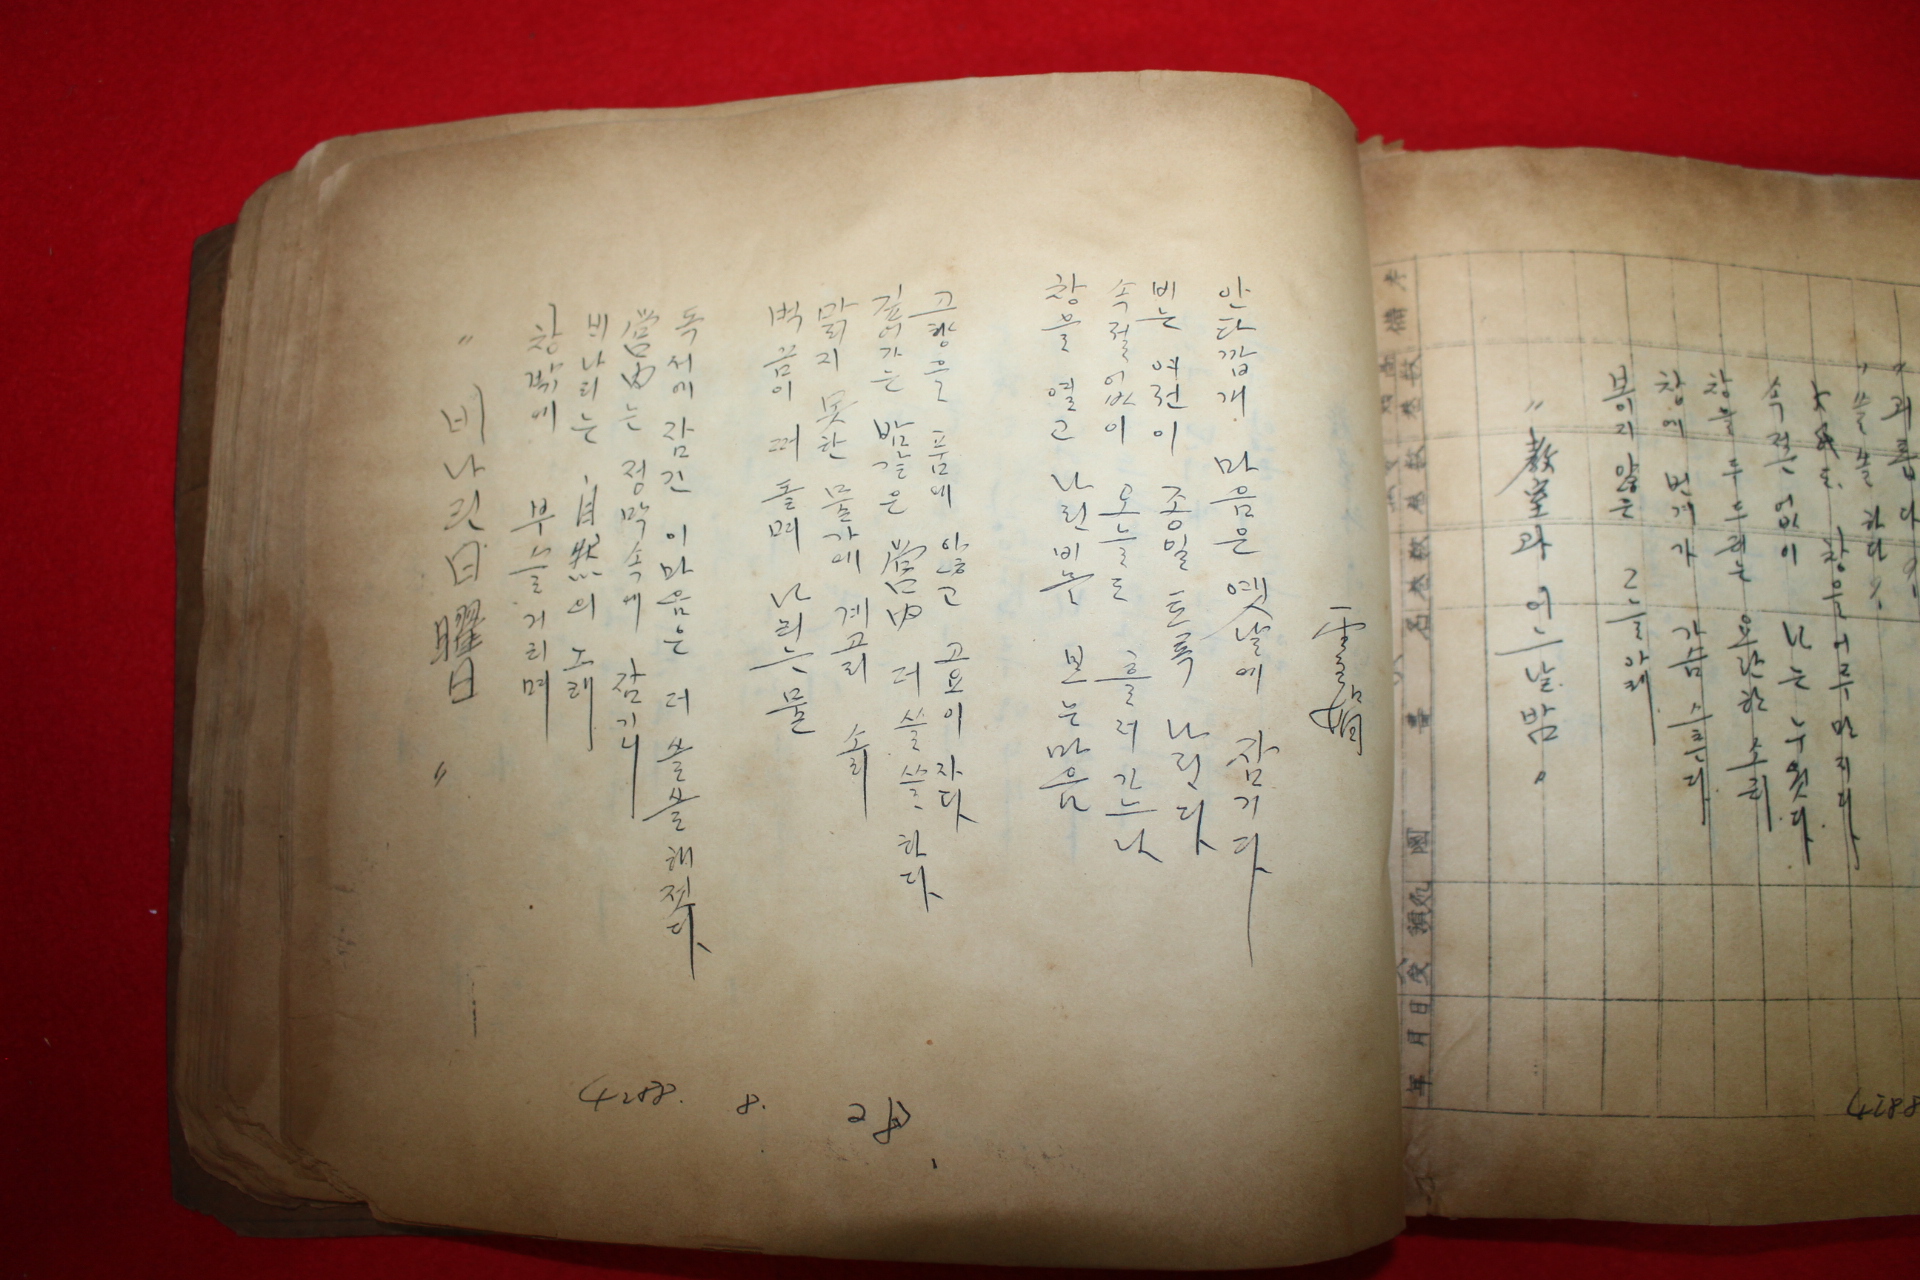 " 비나린 日曜日 "
창밖에 부슬거리며
비나리는 自然의 노래
營內는 정막속에 잠기니
독서에 잠긴 이마음은 더 쓸쓸해젓다.
벽 끔이 떠 돌며 나리는 물
맑지 못한 물가에 계고리 소리
깊어가는 밤같은 營內 더 쓸쓸하다.
고향을 품에 않고 고요이 자다.
창을 열고 나린비는 보는마음
속절없이 오늘도 흘러가느나
비는 여전이 종일 토록 나린다.
안타깝개 마음은 옛날에 잠기다.
4288. 8. 28.
" 敎室과 어느날밤 "
보이지 않은 그늘아래
창에 번개가 가슴
창를 두드리는 요란한 소리
속절없이 나는 누웟다.
창을 어루만지다
"쓸쓸하다"
"괴롭다
4288
年月日